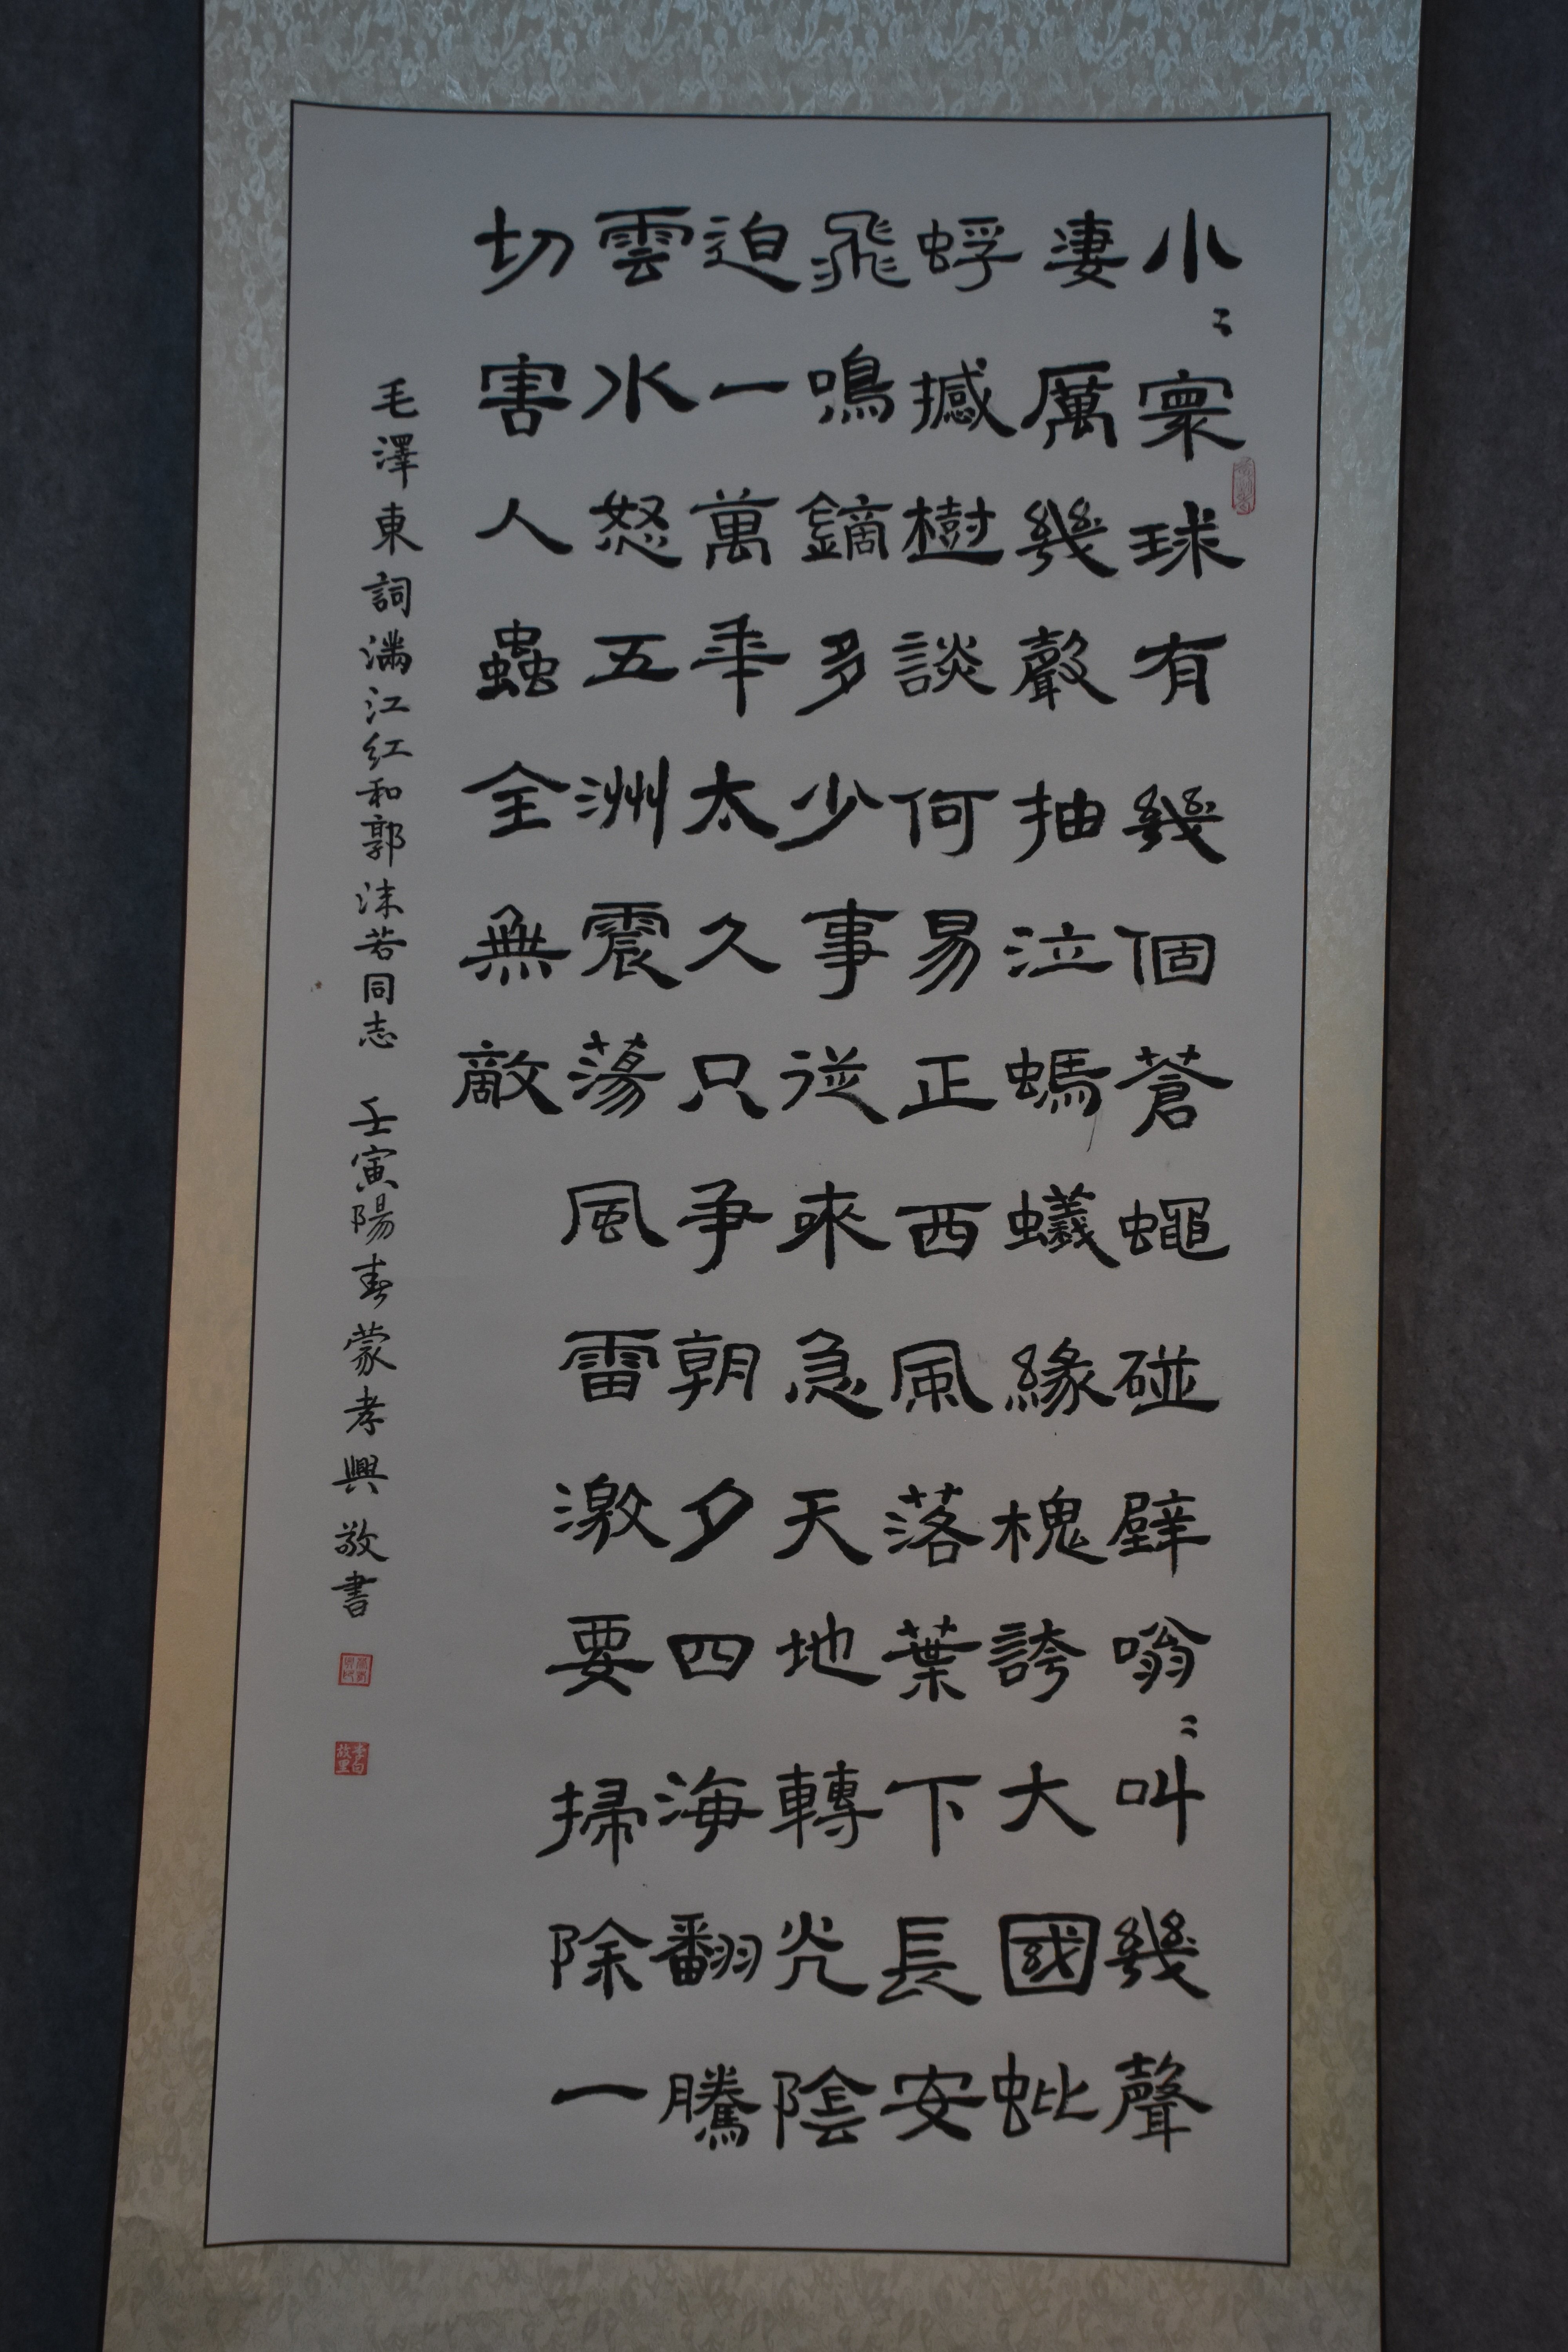 小〻寰球有幾個蒼蠅碰壁嗡〻叫幾聲
淒厲幾聲抽泣螞蟻緣槐誇大國蚍
蜉撼樹談何易正西風落葉下長安
飛鳴鏑多少事從來急天地轉光陰
迫一萬年太久只爭朝夕四海翻騰
雲水怒五洲震蕩風雷激要掃除一
切害人蟲全無敵
毛澤東詞滿江红和郭沫若同志 壬寅陽春蒙孝興敬書
李白故里